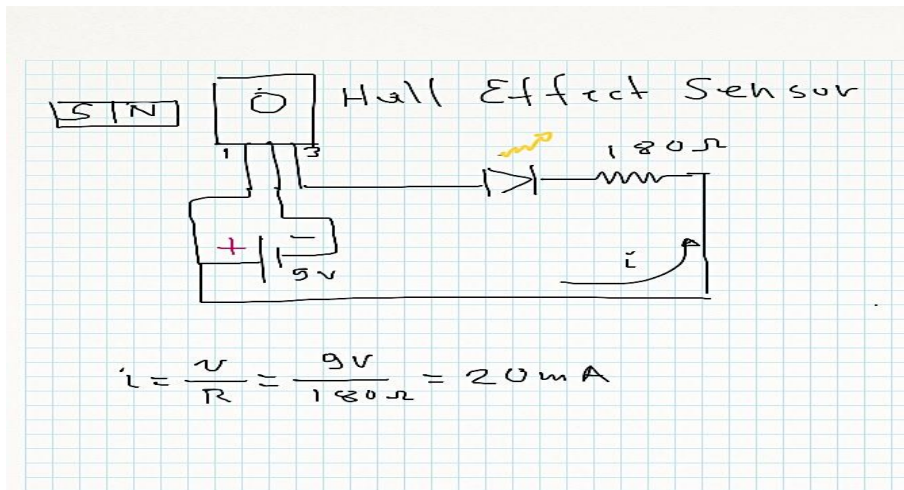 Hall Effect Sensor
S N
1 3
180Ω
+ −
9V
i
i = v/R = 9V/180Ω = 20mA